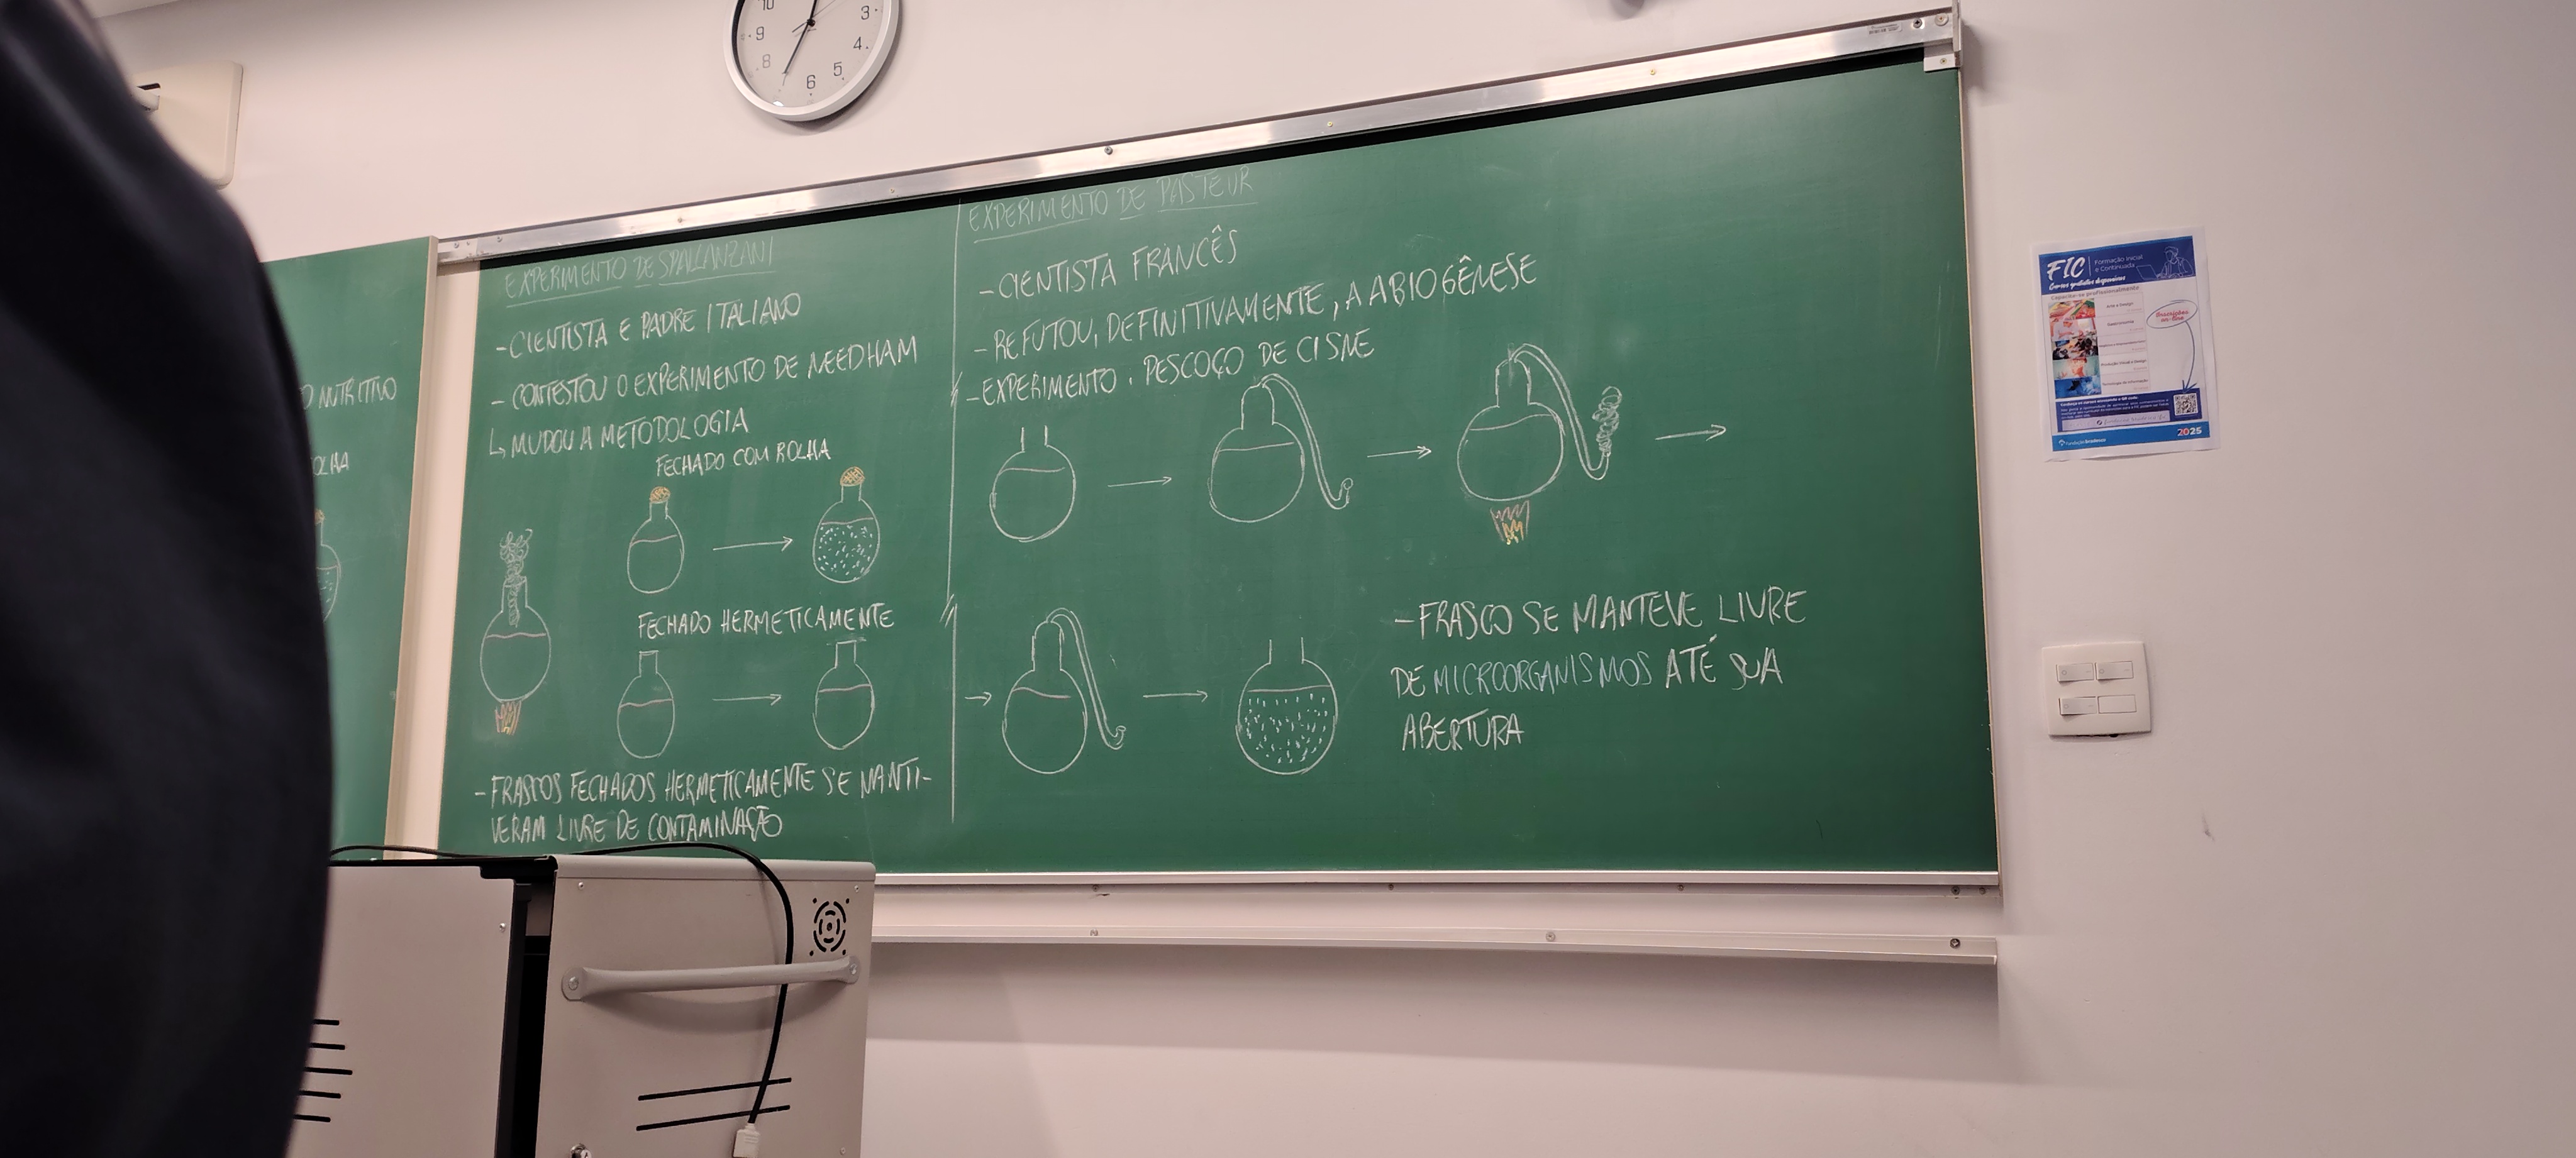 10
9
8
6
5
4
3
O NUTRITIVO
OLHA
EXPERIMENTO DE SPALLANZANI
-CIENTISTA E PADRE ITALIANO
- CONTESTOU O EXPERIMENTO DE NEEDHAM
↳ MUDOU A METODOLOGIA
FECHADO COM ROLHA
FECHADO HERMETICAMENTE
- FRASCOS FECHADOS HERMETICAMENTE SE MANTI-
VERAM LIVRE DE CONTAMINAÇÃO
EXPERIMENTO DE PASTEUR
-CIENTISTA FRANCÊS
-REFUTOU, DEFINITIVAMENTE, A ABIOGÊNESE
-EXPERIMENTO . PESCOÇO DE CISNE
-FRASCO SE MANTEVE LIVRE
DE MICROORGANISMOS ATÉ SUA
ABERTURA
FIC
Formação Inicial
e Continuada
Cursos gratuitos disponíveis
Capacite-se profissionalmente
Inscrições
on-line
Fundação Bradesco
2025